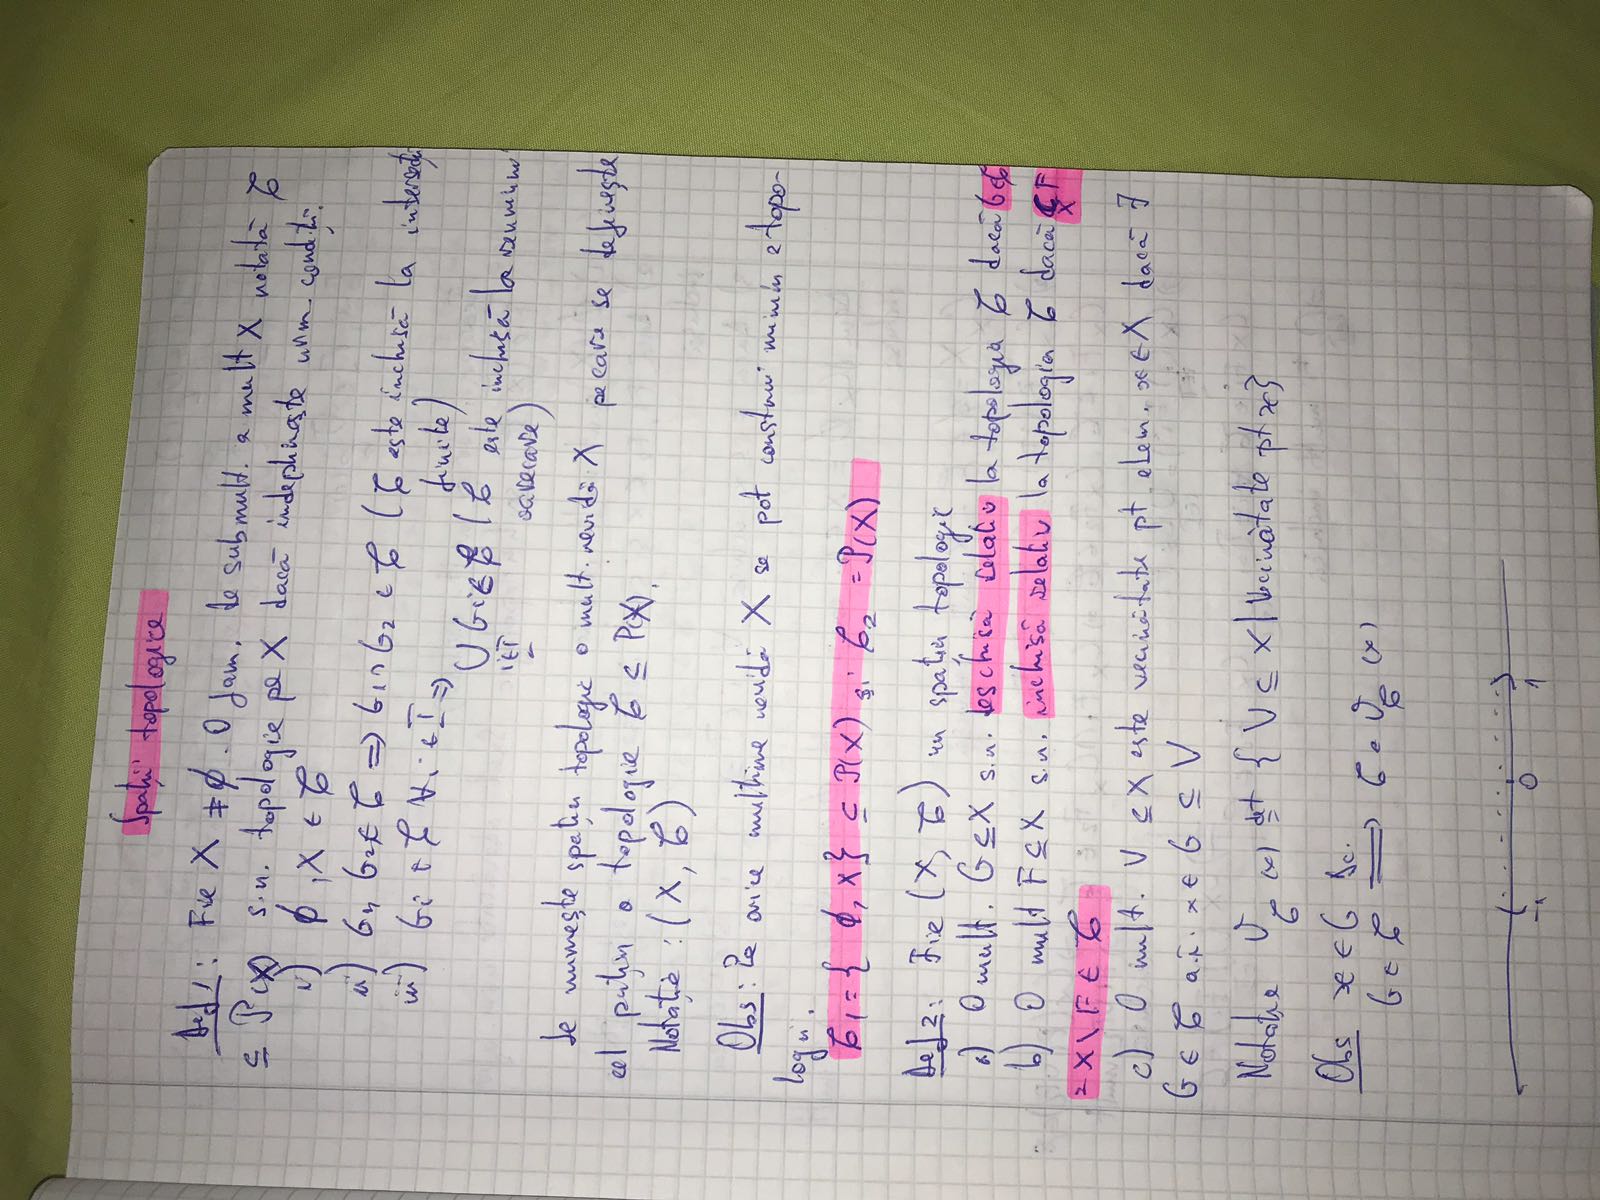 Spații topologice
Def 1: Fie X ≠ ∅. O fam. de submult. a mult X notată 𝒢
⊆ P(X) s.n. topologie pe X dacă îndeplinește urm. condiții:
i) ∅, X ∈ 𝒢
ii) G1, G2 ∈ 𝒢 => G1 ∩ G2 ∈ 𝒢 ( 𝒢 este închisă la intersecții
finite)
iii) Gi ∈ 𝒢 ∀ i ∈ I => ⋃ Gi ∈ 𝒢 ( 𝒢 este închisă la reuniuni
i∈I oarecare)
Se numește spațiu topologic o mult. nevidă X pe care se definește
cel puțin o topologie 𝒢 ⊆ P(X).
Notație: (X, 𝒢)
Obs: Pe orice multime nevidă X se pot construi minim 2 topo-
logii.
𝒢1 = { ∅, X} ⊆ P(X) și 𝒢2 = P(X)
Def 2: Fie (X, 𝒢) un spațiu topologic
a) O mult. G ⊆ X s.n. deschisă relativ la topologia 𝒢 dacă G∈𝒢
b) O mult F ⊆ X s.n. închisă relativ la topologia 𝒢 dacă C F
X
= X \ F ∈ 𝒢
c) O mult. V ⊆ X este vecinătate pt elem. x ∈ X dacă ∃
G ∈ 𝒢 a.î. x ∈ G ⊆ V
Notație V𝒢 (x) =def { V ⊆ X | V vecinătate pt x}
Obs x ∈ G
G ∈ 𝒢 => G ∈ V𝒢 (x)
( )
-1 0 1